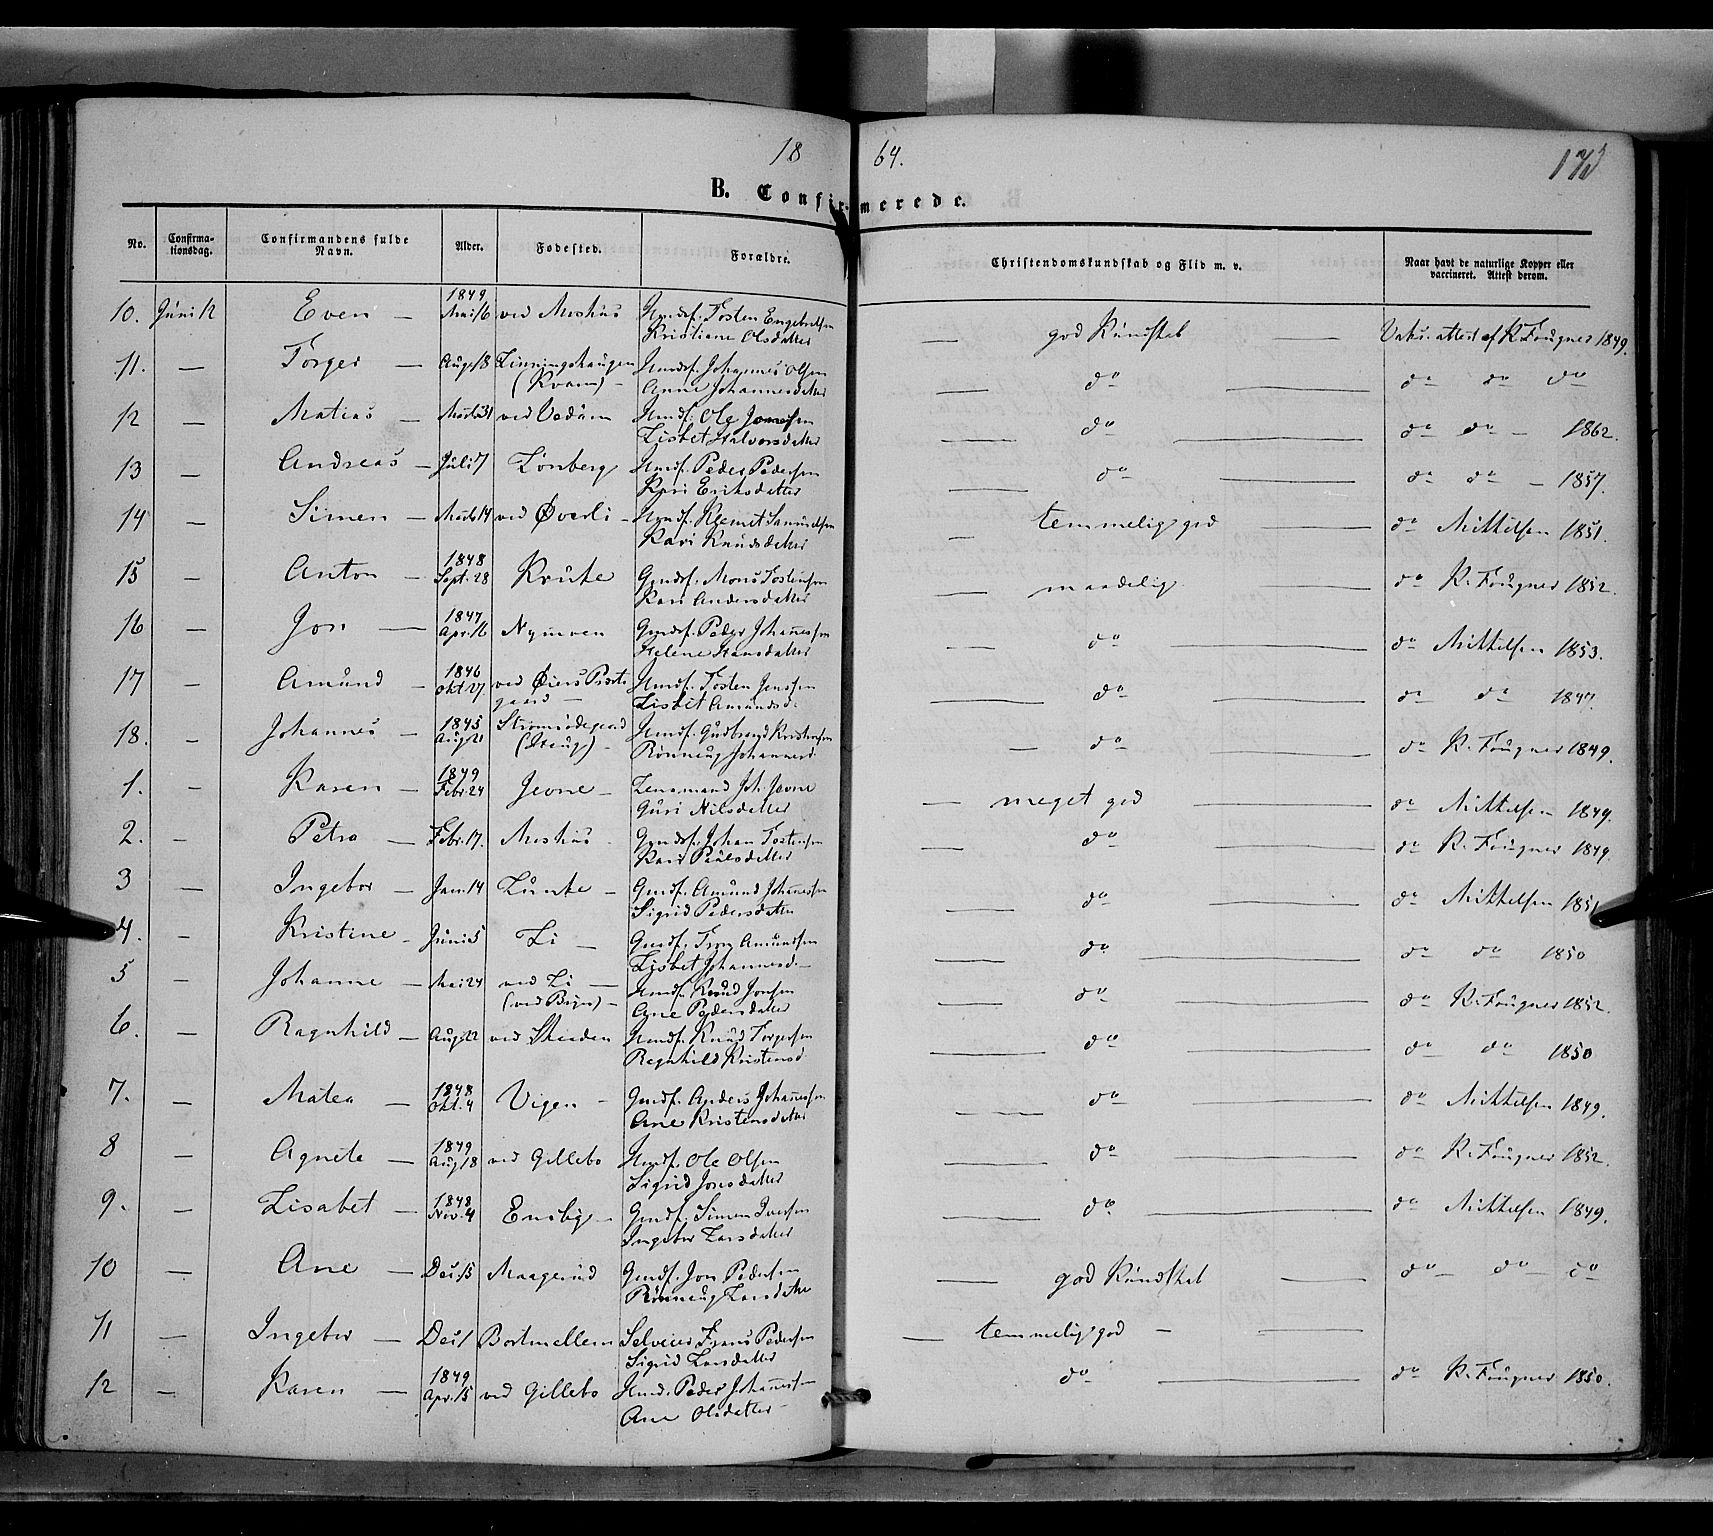 18 64. 173
B. Confirmerede.
No. Confirmationsdag. Confirmandens fulde Navn. Alder. Fødested. Forældre. Christendomskundskab og Flid m. v. Naar havt de naturlige Kopper eller vaccineret. Attest derom.
10. Juni 12 Even — 1849 Mai 16 ved Moshus Huusf. Tosten Engebretsen — god Kundskab — Vaks. attest af K. Fougner 1849.
Kristiane Olsdatter
11. — Torger — Aug. 18 Linningshaugen Huusf. Johannes Olsen — do — do do do
(Kvam) — Anne Johannesdatter
12 — Matias — Marts 31 ved Huusf. Ole Jonsen — do — do do — 1862.
Lisbet Halvorsdatter
13 — Andreas — Juli 7 Lønberg Huusf. Peder Pedersen — do — do do — 1857.
Kari Eriksdatter
14 — Simen — Marts 14 ved Øverli — Huusf. Klemet Samuelsen — temmelig god — do Mikkelsen 1851.
Kari Knudsdatter
15 — Anton — 1848 Sept. 28 Krute Gmdsf. Mons Tostensen — maadelig — do K. Fougner 1852.
Kari Andersdatter
16 — Jon — 1847 Apr. 16 Gmdsf. Peder Johannessen — do — do Mikkelsen 1853.
Helene Hansdatter
17 — Amund — 1846 Okt. 27 ved Øiers Præste- Huusf. Tosten Jensen — do — do do 1847.
gaard — Lisbet Amundsd.
18. — Johannes — 1845 Aug. 21 Huusf. Gudbrand Kristensen — do — do K. Fougner 1849.
Rønnaug Johannesd.
1. — Karen — 1849 Febr. 24 Jevne — Lensmand Joh. Jevne — meget god — do Mikkelsen 1849.
Guri Nilsdatter
2. — Petra — Febr. 17. Moshus Gmdsf. Johan Tostensen — do — do K. Fougner 1849.
Kari Paulsdatter
3 — Ingebor — Jan. 14 Lunke — Gmdsf. Amund Johannessen — do — do Mikkelsen 1851
Sigrid Pedersdatter
4. — Kristine — Juni 5 Li — Gmdsf. Amundsen — do — do do 1850
Lisbet Johannesd. —
5 — Johanne — Mai 24 ved Li — Huusf. Knud Jonsen — do — do K. Fougner 1852.
(ved Bryn) — Ane Pedersdatter
6. — Ragnhild — Aug. 22 ved Skaaden Huusf. Knud Torgersen — do — do do 1850
Ragnhild Kristensd.
7. — Matea — 1848 Okt. 4 Vigen — Gmdf. Anders Johannessen — do — do Mikkelsen 1849.
Ane Kristensdatter
8 — Agnete — 1849 Aug. 18 ved Gillebo Huusf. Ole Olsen — do — do K. Fougner 1852.
Sigrid Jonsdatter
9. — Lisabet — 1848 Nov. 4 Ensby — Gmdf. Simen Iversen — do — do Mikkelsen 1849.
Ingebor Larsdatter
10 — Ane — Des. 15 Maagerud Gmdf. Jon Pedersen — god Kundskab — do — do do
Rønnaug Larsdatter
11 — Ingebor — Des. 1 Selveier Frans Pedersen — temmelig god —
Sigrid Larsdatter
12 — Karen — 1849 Apr. 15 ved Gillebo Huusf. Peder Johannessen do — do K. Fougner 1850.
Ane Olsdatter —